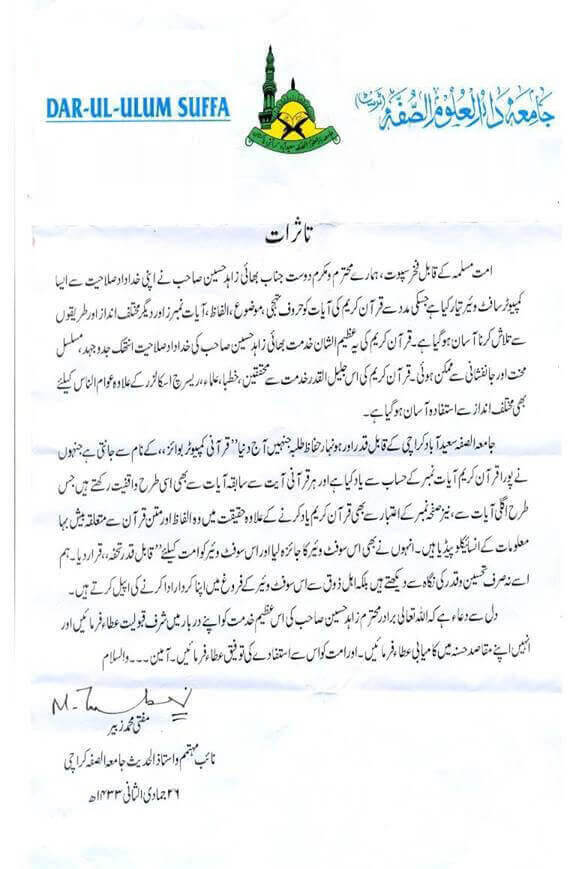 DAR-UL-ULUM SUFFA
جامعۃ دار العلوم الصُّفّۃ (ٹرسٹ)
تاثرات
امت مسلمہ کے قابل فخر سپوت، ہمارے محترم و مکرم دوست جناب بھائی زاہد حسین صاحب نے اپنی خداداد صلاحیت سے ایسا
کمپیوٹر سافٹ وئیر تیار کیا ہے جسکی مدد سے قرآن کریم کی آیات کو حروف تہجی، موضوع، الفاظ، آیات نمبرز اور دیگر مختلف انداز اور طریقوں
سے تلاش کرنا آسان ہو گیا ہے۔ قرآن کریم کی یہ عظیم الشان خدمت بھائی زاہد حسین صاحب کی خداداد صلاحیت انتھک جدوجہد، مسلسل
محنت اور جانفشانی سے ممکن ہوئی۔ قرآن کریم کی اس جلیل القدر خدمت سے محققین، خطباء، علماء، ریسرچ اسکالرز کے علاوہ عوام الناس کیلئے
بھی مختلف انداز سے استفادہ آسان ہو گیا ہے۔
جامعہ الصفہ سعید آباد کراچی کے قابل قدر اور ہونہار حفاظ طلبہ جنہیں آج دنیا ”قرآنی کمپیوٹر بوائز،، کے نام سے جانتی ہے جنہوں
نے پورا قرآن کریم آیات نمبر کے حساب سے یاد کیا ہے اور ہر قرآنی آیت سے سابقہ آیات سے بھی اسی طرح واقفیت رکھتے ہیں جس
طرح اگلی آیات سے، نیز صفحہ نمبر کے اعتبار سے بھی قرآن کریم یاد کرنے کے علاوہ حقیقت میں وہ الفاظ اور متن قرآن سے متعلقہ بیش بہا
معلومات کے انسائیکلوپیڈیا ہیں۔ انہوں نے بھی اس سوفٹ وئیر کا جائزہ لیا اور اس سوفٹ وئیر کو امت کیلئے ”قابل قدر تحفہ،، قرار دیا۔ ہم
اسے نہ صرف تحسین و قدر کی نگاہ سے دیکھتے ہیں بلکہ اہل ذوق سے اس سوفٹ وئیر کے فروغ میں اپنا کردار ادا کرنے کی اپیل کرتے ہیں۔
دل سے دعاء ہے کہ اللہ تعالی برادر محترم زاہد حسین صاحب کی اس عظیم خدمت کو اپنے دربار میں شرف قبولیت عطاء فرمائیں اور
انہیں اپنے مقاصد حسنہ میں کامیابی عطاء فرمائیں۔ اور امت کو اس سے استفادے کی توفیق عطاء فرمائیں۔ آمین ۔۔۔ والسلام
مفتی محمد زبیر
نائب مہتمم و استاذ الحدیث جامعہ الصفہ کراچی
۲۶ جمادی الثانی ۱۴۳۳ھ